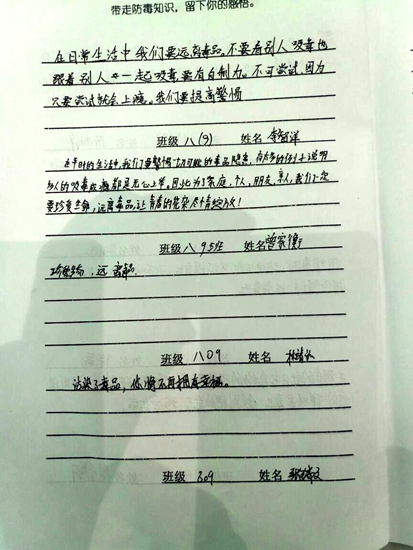 带走防毒知识，留下你的感悟。
在日常生活中我们要远离毒品。不要看别人吸毒也
跟着别人一起吸毒要有自制力。不可尝试，因为
只要尝试就会上瘾。我们要提高警惕
班级 八(9) 姓名
在平时的生活中，我们要警惕一切可能的毒品隐患，
的吸毒 都是 ，因此为了家庭，个人，朋友，亲人，我们一定
要珍爱生命，远离毒品，让青春的花朵尽情绽放！
班级 八 9班 姓名 曾家衡
，远离毒品。
班级 八09 姓名
沾染了毒品，你将不再拥有幸福。
班级 809 姓名